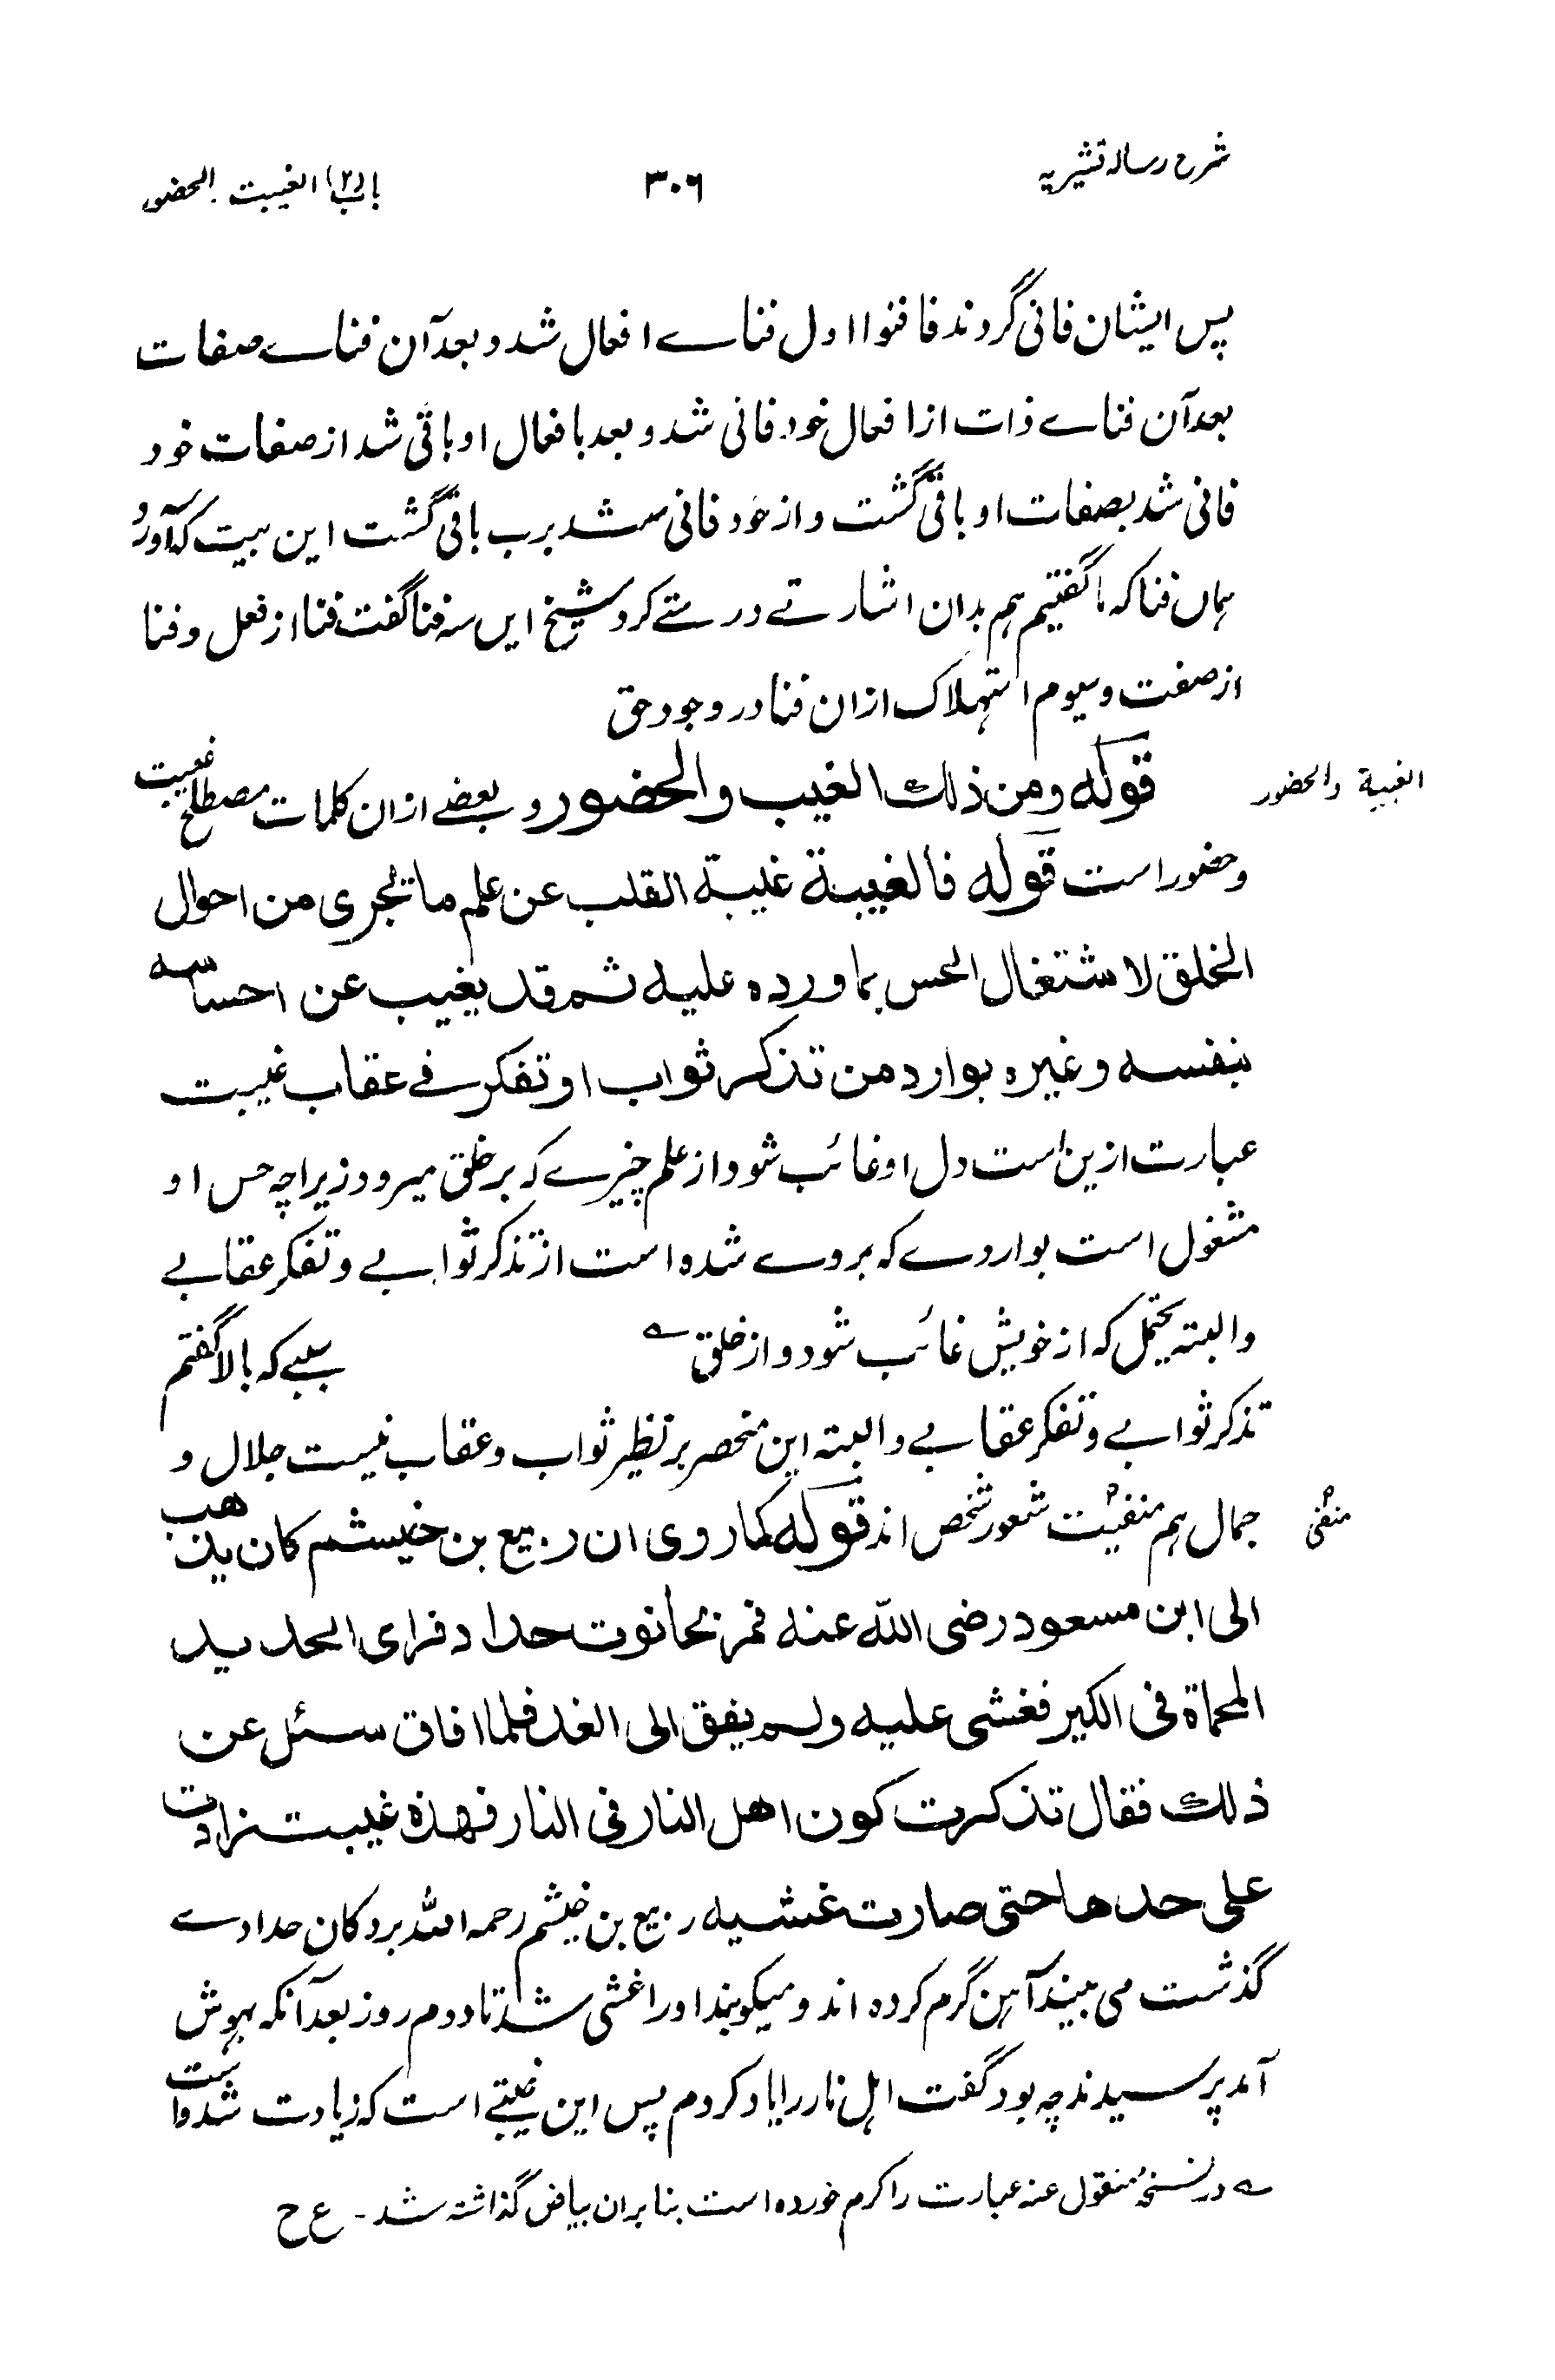 شرح رساله قشیریه
۳۰۶
باب (۲) الغیبت والحضور
پس ایشان فانی گردند فافنوا اول فناے افعال شد و بعد آن فناے صفات
بعد آن فناے ذات از افعال خود فانی شد و بعد با فعال او باقی شد از صفات خود
فانی شد بصفات او باقی گشت و از خود فانی شد برب باقی گشت این بیت که آورد
همان فنا که ما گفتیم هم بدان اشارتے درستے کرد شیخ ایں سه فنا گفت فنا از فعل و فنا
از صفت و سیوم استهلاک ازان فنا در وجود حق
الغیبة والحضور
قوله ومن ذلك الغیب والحضور و بعضے ازان کلمات مصطلح غیبت
و حضور است قوله فالغیبة غیبة القلب عن علم ما یجری من احوال
الخلق لاشتغال الحس بما ورده علیه ثم قد یغیب عن احساسه
بنفسه وغیره بوارد من تذکر ثواب او تفکر فے عقاب غیبت
عبارت ازین است دل او غائب شود از علم چیزے که بر خلق میرود زیراچه حس او
مشغول است بواردے که بروے شده است از تذکر ثوابے و تفکر عقابے
و البته یحتمل که از خویش غائب شود و از خلق ؎ سببے که بالا گفتم
تذکر ثوابے و تفکر عقابے و البته این منحصر بر نظیر ثواب و عقاب نیست جلال و
جمال هم منفیت شعور شخص اند قوله کما روی ان ربیع بن خیشم کان یذهب
منفی
الی ابن مسعود رضی الله عنه فمر بحانوت حداد فرای الحدید
المحماة فی الکیر فغشی علیه ولم یفق الی الغد فلما افاق سئل عن
ذلك فقال تذکرت کون اهل النار فی النار فهذه غیبت زادت
علی حدها حتی صارت غشیه ربیع بن خیشم رحمه الله بر دکان حدادے
گذشت می بیند آهن گرم کرده اند و میکوبند او را غشی شد تا دوم روز بعد آنکه بهوش
آمد پرسیدند چه بود گفت اهل نار را یاد کردم پس این غیبتے است که زیادت شده است
؎ در نسخهٔ منقول عنه عبارت را کرم خورده است بنا بران بیاض گذاشته شد ۔ ع ح